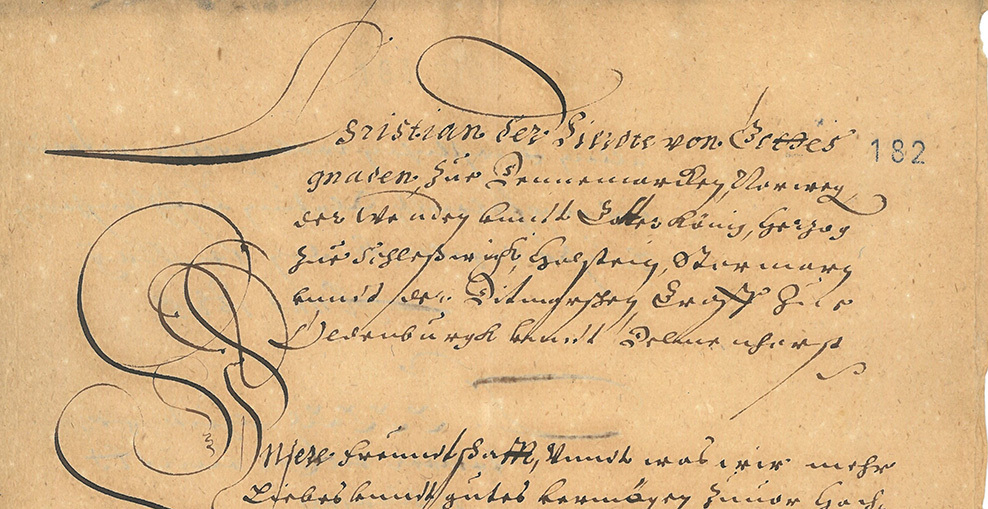 Christian der Vierdte von Gottes
gnaden, Zue Dennemarcken, Norwegen,
der Wenden vnndt Gotten König, Herzog
zue Schleßwich, Holstein, Stormarn
vnndt der Ditmarschen, Graff zue
Oldenburgk vnndt Delmenhorst
182
Vnsere freundtschafft, Vnndt was wir mehr
Liebes vnndt gutes vermögen zuuor Hoch,